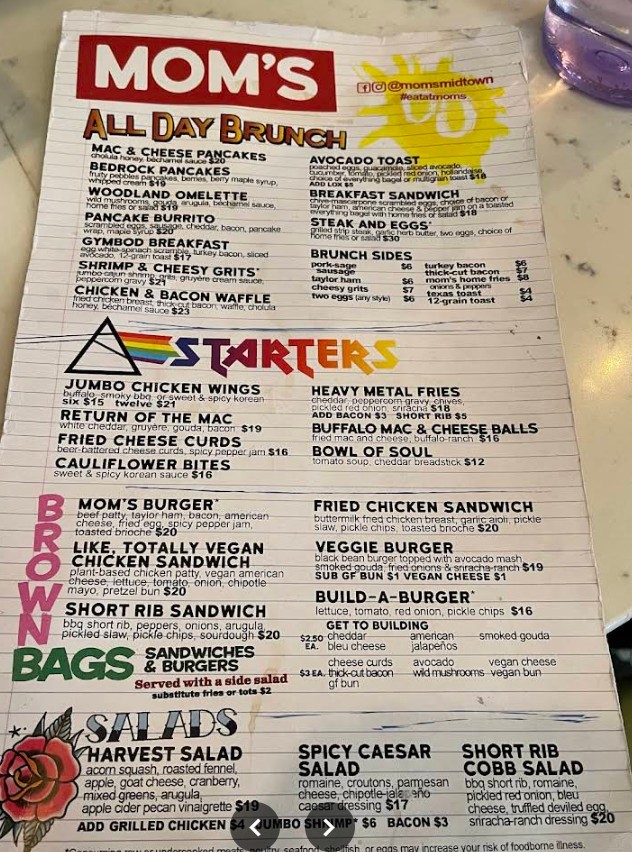 MOM'S
@momsmidtown
#eatatmoms
ALL DAY BRUNCH
MAC & CHEESE PANCAKES
cholula honey, béchamel sauce $20
BEDROCK PANCAKES
fruity pebbles pancakes, berries, berry maple syrup,
whipped cream $19
WOODLAND OMELETTE
wild mushrooms, gouda, arugula, béchamel sauce,
home fries or salad $19
PANCAKE BURRITO
scrambled eggs, sausage, cheddar, bacon, pancake
wrap, maple syrup $20
GYMBOD BREAKFAST
egg white-spinach scramble, turkey bacon, sliced
avocado, 12-grain toast $17
SHRIMP & CHEESY GRITS*
jumbo-cajun shrimp, grits, gruyère cream sauce,
peppercorn gravy $21
CHICKEN & BACON WAFFLE
fried chicken breast, thick-cut bacon, waffle, cholula
honey, béchamel sauce $23
AVOCADO TOAST
poached eggs, guacamole, sliced avocado,
cucumber, tomato, pickled red onion, hollandaise,
choice of everything bagel or multigrain toast $18
ADD LOX $5
BREAKFAST SANDWICH
chive-mascarpone scrambled eggs, choice of bacon or
taylor ham, american cheese & pepper jam on a toasted
everything bagel with home fries or salad $18
STEAK AND EGGS*
grilled strip steak, garlic herb butter, two eggs, choice of
home fries or salad $30
BRUNCH SIDES
pork-sage
sausage $6
taylor ham $6
cheesy grits $7
two eggs (any style) $6
turkey bacon $6
thick-cut bacon $7
mom's home fries $8
onions & peppers
texas toast $4
12-grain toast $4
STARTERS
JUMBO CHICKEN WINGS
buffalo, smoky bbq, or sweet & spicy korean
six $15 twelve $21
RETURN OF THE MAC
white cheddar, gruyère, gouda, bacon $19
FRIED CHEESE CURDS
beer-battered cheese curds, spicy pepper jam $16
CAULIFLOWER BITES
sweet & spicy korean sauce $16
HEAVY METAL FRIES
cheddar, peppercorn gravy, chives,
pickled red onion, sriracha $18
ADD BACON $3 SHORT RIB $5
BUFFALO MAC & CHEESE BALLS
fried mac and cheese, buffalo-ranch $16
BOWL OF SOUL
tomato soup, cheddar breadstick $12
BROWN
BAGS
SANDWICHES
& BURGERS
Served with a side salad
substitute fries or tots $2
MOM'S BURGER*
beef patty, taylor ham, bacon, american
cheese, fried egg, spicy pepper jam,
toasted brioche $20
LIKE, TOTALLY VEGAN
CHICKEN SANDWICH
plant-based chicken patty, vegan american
cheese, lettuce, tomato, onion, chipotle
mayo, pretzel bun $20
SHORT RIB SANDWICH
bbq short rib, peppers, onions, arugula,
pickled slaw, pickle chips, sourdough $20
FRIED CHICKEN SANDWICH
buttermilk fried chicken breast, garlic aioli, pickle
slaw, pickle chips, toasted brioche $20
VEGGIE BURGER
black bean burger topped with avocado mash,
smoked gouda, fried onions & sriracha-ranch $19
SUB GF BUN $1 VEGAN CHEESE $1
BUILD-A-BURGER*
lettuce, tomato, red onion, pickle chips $16
GET TO BUILDING
$2.50 EA. cheddar american smoked gouda
bleu cheese jalapeños
cheese curds avocado vegan cheese
$3 EA. thick-cut bacon wild mushrooms vegan bun
gf bun
SALADS
HARVEST SALAD
acorn squash, roasted fennel,
apple, goat cheese, cranberry,
mixed greens, arugula,
apple cider pecan vinaigrette $19
SPICY CAESAR
SALAD
romaine, croutons, parmesan
cheese, chipotle-jalapeño
caesar dressing $17
SHORT RIB
COBB SALAD
bbq short rib, romaine,
pickled red onion, bleu
cheese, truffled deviled egg,
sriracha-ranch dressing $20
ADD GRILLED CHICKEN $4 JUMBO SHRIMP* $6 BACON $3
*Consuming raw or undercooked meats, poultry, seafood, shellfish, or eggs may increase your risk of foodborne illness.